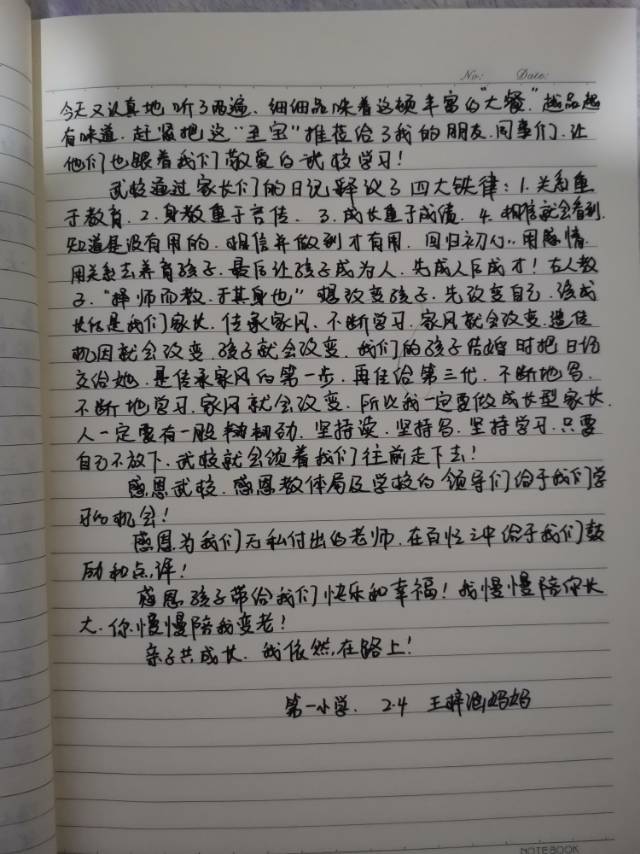 No: Date:
今天又认真地听了两遍、细细品味着这顿丰富的"大餐"越品越
有味道.赶紧把这"至宝"推荐给了我的朋友.同事们.让
他们也跟着我们敬爱的武校学习!
武校通过家长们的日记释议了四大铁律:1.关系重
于教育.2.身教重于言传.3.成长重于成绩.4.相信就会看到.
知道是没有用的.相信并做到才有用.回归初心..用感情.
用关系去养育孩子.最后让孩子成为人.先成人后成才!古人教
子."择师而教.于其身也"想改变孩子.先改变自己.该成
长的是我们家长.传承家风.不断学习.家风就会改变.遗传
机因就会改变.孩子就会改变.我们的孩子结婚时把日记
交给她.是传承家风的第一步.再往给第三代.不断地写.
不断地学习.家风就会改变.所以我一定要做成长型家长.
人一定要有一股韧劲.坚持读.坚持写.坚持学习.只要
自己不放下.武校就会领着我们往前走下去!
感恩武校.感恩教体局及学校的领导们给于我们学
习的机会!
感恩为我们无私付出的老师.在百忙之中给于我们鼓
励和点评!
感恩孩子带给我们快乐和幸福!我慢慢陪你长
大.你慢慢陪我变老!
亲子共成长.我依然在路上!
第一小学. 2.4 王梓涵妈妈
NOTEBOOK